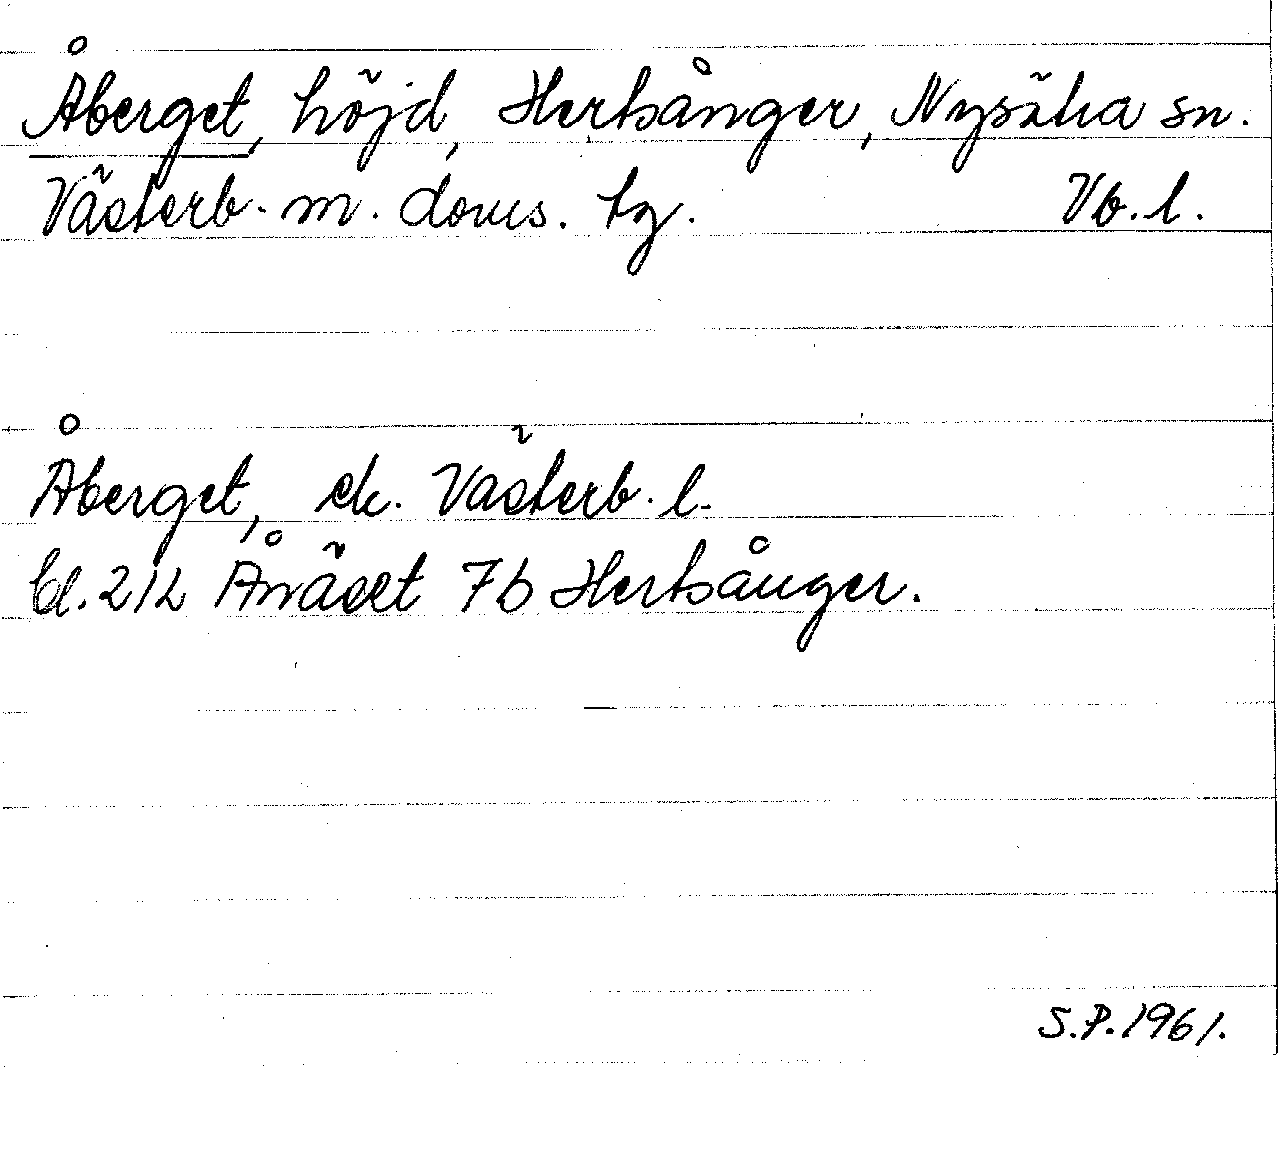 Åberget, höjd, Hertsånger, Nysätra sn.
Västerb. m. doms. tg. Vb. l.
Åberget, ek. Västerb. l.
bl. 212 Ånäset 7b Hertsånger.
S.P. 1961.